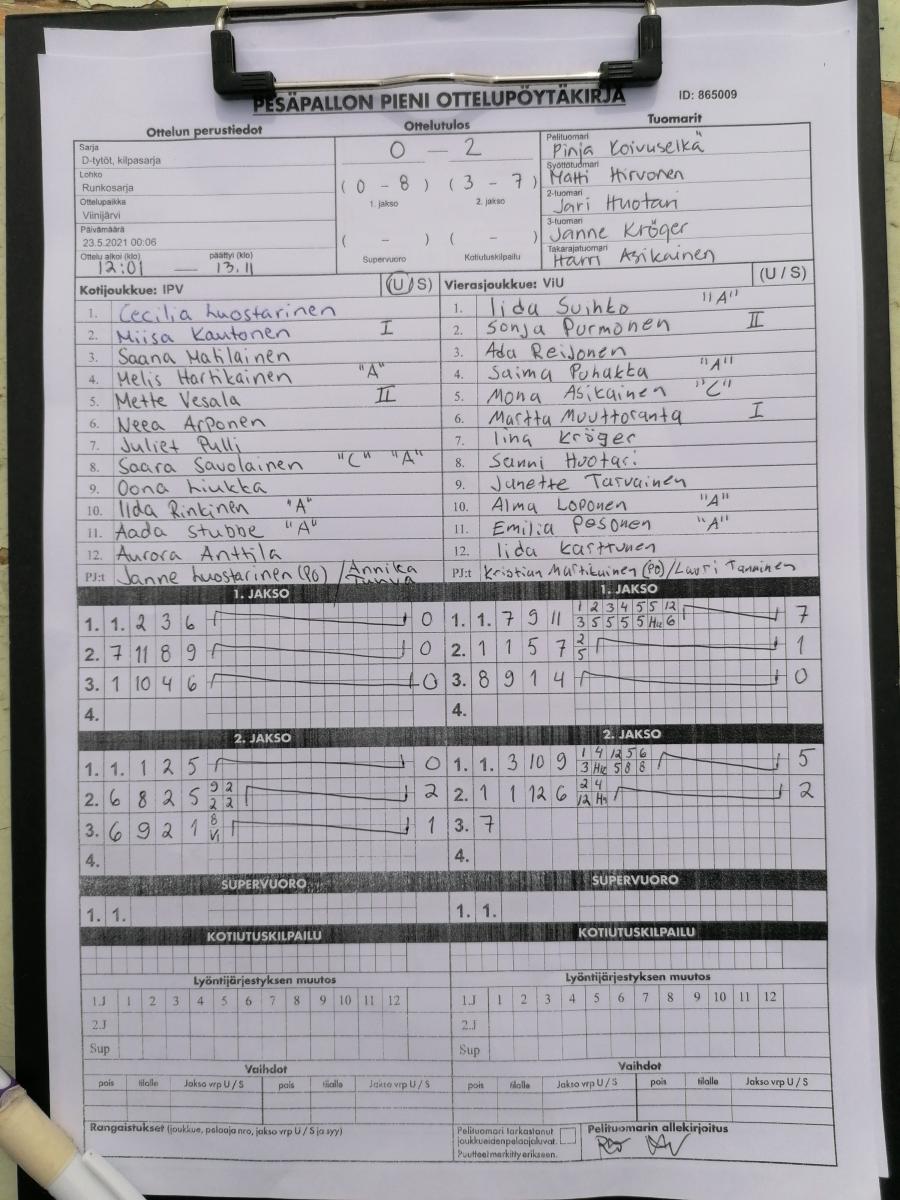 PESÄPALLON PIENI OTTELUPÖYTÄKIRJA ID: 865009
Ottelun perustiedot Ottelutulos Tuomarit
Sarja
D-tytöt, kilpasarja
Lohko
Runkosarja
Ottelupaikka
Viinijärvi
Päivämäärä
23.5.2021 00:06
Ottelu alkoi (klo) päättyi (klo)
12:01 — 13.11
0 — 2
(0 - 8) (3 - 7)
1. jakso 2. jakso
( - ) ( - )
Supervuoro Kotiutuskilpailu
Pelituomari
Pinja Koivuselkä
Syöttötuomari
Matti Hirvonen
2-tuomari
Jari Huotari
3-tuomari
Janne Kröger
Takarajatuomari
Harri Asikainen
Kotijoukkue: IPV (U/S)
1. Cecilia Luostarinen
2. Miisa Kautonen I
3. Saana Matilainen
4. Melis Hartikainen "A"
5. Mette Vesala II
6. Neea Arponen
7. Juliet Pulli
8. Saara Savolainen "C" "A"
9. Oona Liukka
10. Iida Rinkinen "A"
11. Aada Stubbe "A"
12. Aurora Anttila
PJ:t Janne Luostarinen (PO) / Annika
Vierasjoukkue: ViU (U/S)
1. Iida Suihko "A"
2. Sonja Purmonen II
3. Ada Reijonen
4. Saima Puhakka "A"
5. Mona Asikainen "C"
6. Martta Muuttoranta I
7. Iina Kröger
8. Sanni Huotari
9. Janette Tarvainen
10. Alma Loponen "A"
11. Emilia Pesonen "A"
12. Iida Karttunen
PJ:t Kristian Martikainen (PO) / Lauri Tanninen
1. JAKSO
1. 1. 2 3 6 0
2. 7 11 8 9 0
3. 1 10 4 6 0
4.
1. JAKSO
1 2 3 4 5 5 12
1. 1. 7 9 11 3 5 5 5 5 Hu 6 7
2
2. 1 1 5 7 5 1
3. 8 9 1 4 0
4.
2. JAKSO
1. 1. 1 2 5 0
9 2
2. 6 8 2 5 2 2 2
8
3. 6 9 2 1 V1 1
4.
2. JAKSO
1 4 12 5 6
1. 1. 3 10 9 3 Hu 5 8 8 5
2 4
2. 1 1 12 6 12 Hu 2
3. 7
4.
SUPERVUORO SUPERVUORO
1. 1. 1. 1.
KOTIUTUSKILPAILU KOTIUTUSKILPAILU
Lyöntijärjestyksen muutos Lyöntijärjestyksen muutos
1.J 1 2 3 4 5 6 7 8 9 10 11 12 1.J 1 2 3 4 5 6 7 8 9 10 11 12
2.J 2.J
Sup Sup
Vaihdot Vaihdot
pois tilalle Jakso vrp U / S pois tilalle Jakso vrp U / S pois tilalle Jakso vrp U / S pois tilalle Jakso vrp U / S
Rangaistukset (joukkue, pelaaja nro, jakso vrp U / S ja syy)
Pelituomari tarkastanut
joukkueiden pelaajaluvat.
Puutteet merkitty erikseen.
Pelituomarin allekirjoitus